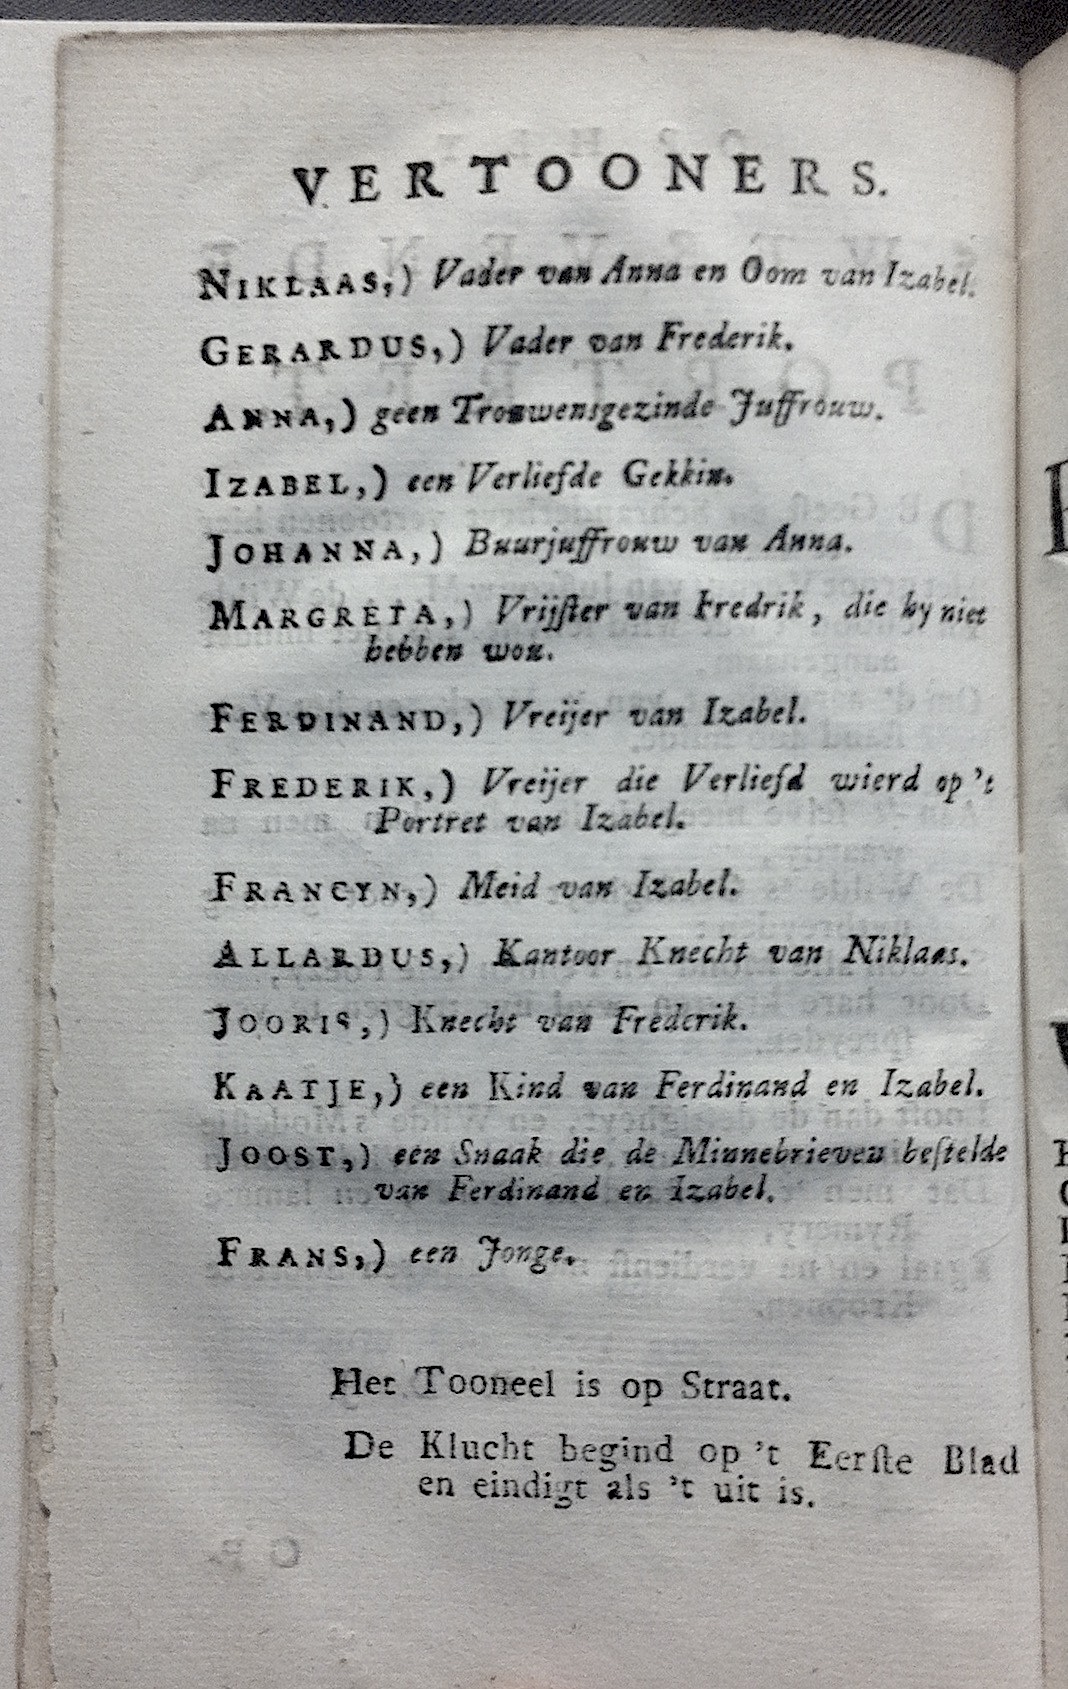 VERTOONERS.
NIKLAAS,) Vader van Anna en Oom van Izabel.
GERARDUS,) Vader van Frederik.
ANNA,) geen Trouwensgezinde Juffrouw.
IZABEL,) een Verliefde Gekkin.
JOHANNA,) Buurjuffrouw van Anna.
MARGRETA,) Vrijſter van Fredrik, die hy niet
hebben wou.
FERDINAND,) Vreijer van Izabel.
FREDERIK,) Vreijer die Verliefd wierd op 't
Portret van Izabel.
FRANCYN,) Meid van Izabel.
ALLARDUS,) Kantoor Knecht van Niklaas.
JOORIS,) Knecht van Frederik.
KAATJE,) een Kind van Ferdinand en Izabel.
JOOST,) een Snaak die de Minnebrieven beſtelde
van Ferdinand en Izabel.
FRANS,) een Jonge.
Het Tooneel is op Straat.
De Klucht begind op 't Eerſte Blad
en eindigt als 't uit is.